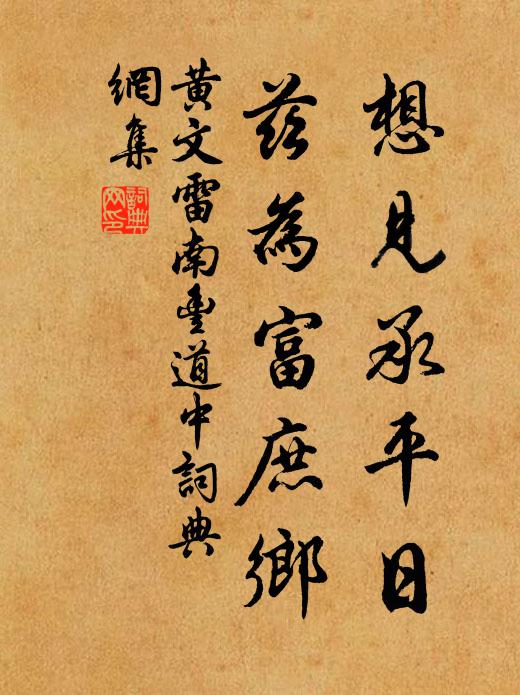 想見承平日
茲為富庶鄉
黃文雷南豐道中詞典
網集
詞典
網印